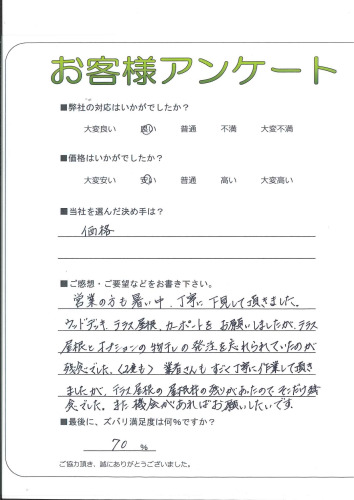 お客様アンケート
■弊社の対応はいかがでしたか？
大変良い 良い 普通 不満 大変不満
■価格はいかがでしたか？
大変安い 安い 普通 高い 大変高い
■当社を選んだ決め手は？
価格
■ご感想・ご要望などをお書き下さい。
営業の方も暑い中、丁寧に下見して頂きました。
ウッドデッキ、テラス屋根、カーポートをお願いしましたが、テラス
屋根とオプションの物干しの発注を忘れられていたのが
残念でした。(2度も) 業者さんもすごく丁寧に作業して頂き
ましたが、テラス屋根の屋根材の残りがあったのでそこだけ残
念でした。また機会があればお願いしたいです。
■最後に、ズバリ満足度は何％ですか？
70 ％
ご協力頂き、誠にありがとうございました。